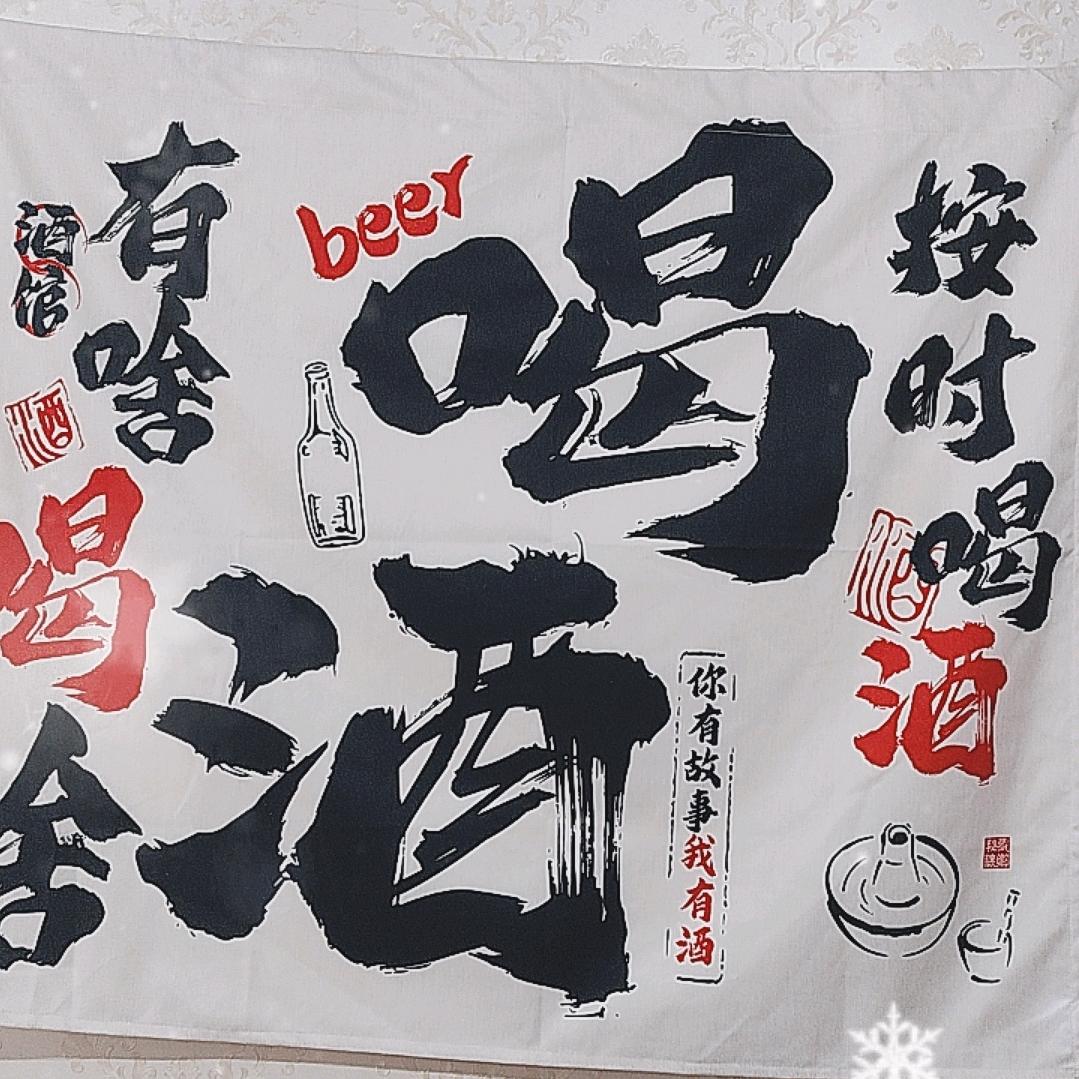 按时喝酒
酒
喝酒
beer
你有故事我有酒
有啥喝啥
酒馆
酒